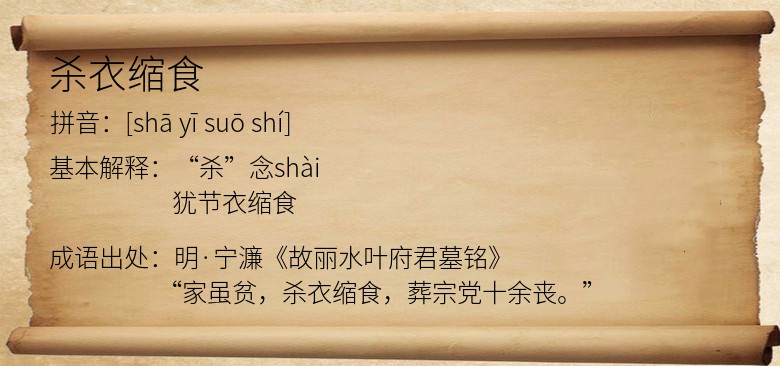 杀衣缩食
拼音：[shā yī suō shí]
基本解释：“杀”念shài
犹节衣缩食
成语出处：明·宁濂《故丽水叶府君墓铭》
“家虽贫，杀衣缩食，葬宗党十余丧。”